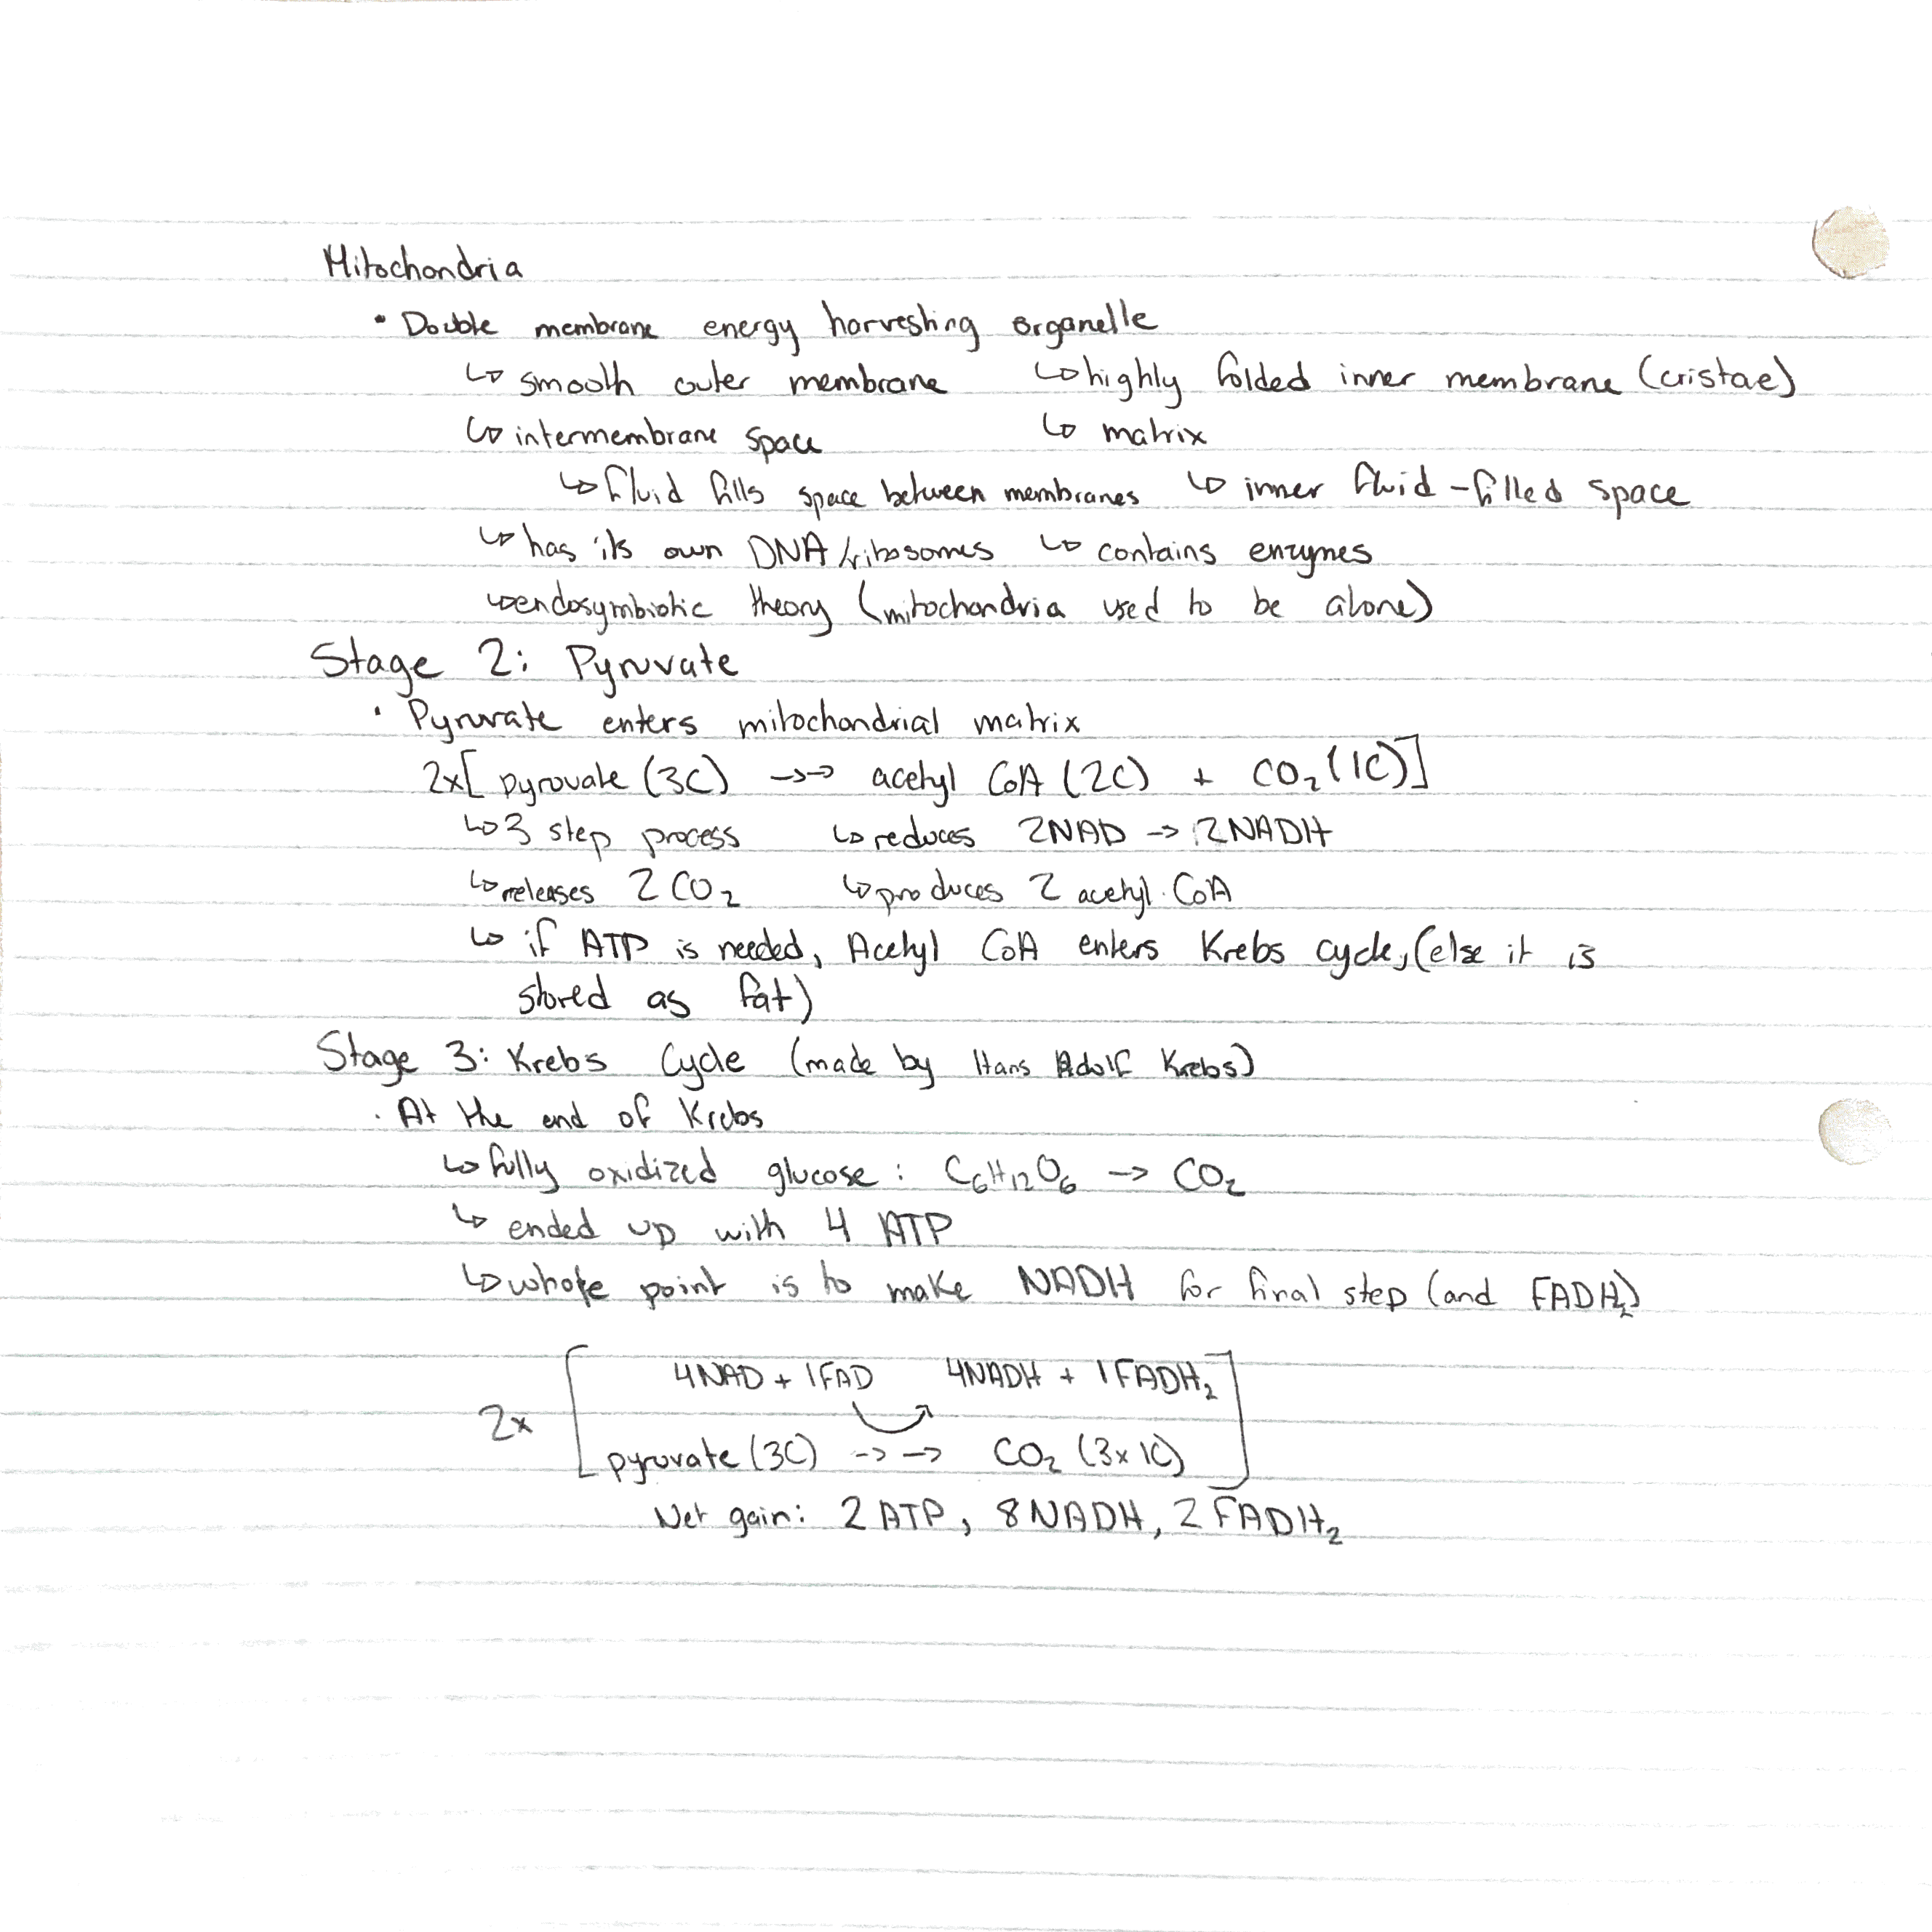 Mitochondria
• Double membrane energy harvesting organelle
↳ smooth outer membrane ↳ highly folded inner membrane (cristae)
↳ intermembrane space ↳ matrix
↳ fluid fills space between membranes ↳ inner fluid-filled space
↳ has its own DNA/ribosomes ↳ contains enzymes
↳ endosymbiotic theory (mitochondria used to be alone)
Stage 2: Pyruvate
• Pyruvate enters mitochondrial matrix
2x[pyruvate (3C) →→ acetyl CoA (2C) + CO₂ (1C)]
↳ 3 step process ↳ reduces 2NAD → 2NADH
↳ releases 2 CO₂ ↳ produces 2 acetyl CoA
↳ if ATP is needed, Acetyl CoA enters Krebs cycle, (else it is
stored as fat)
Stage 3: Krebs Cycle (made by Hans Adolf Krebs)
• At the end of Krebs
↳ fully oxidized glucose: C₆H₁₂O₆ → CO₂
↳ ended up with 4 ATP
↳ whole point is to make NADH for final step (and FADH₂)
4NAD + 1FAD 4NADH + 1FADH₂
2x
pyruvate (3C) →→ CO₂ (3x1C)
Net gain: 2 ATP, 8 NADH, 2 FADH₂